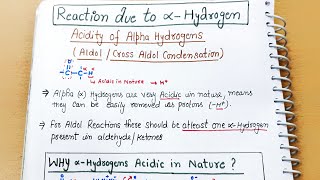 Reaction due to α-Hydrogen
Acidity of Alpha Hydrogens
(Aldol / Cross Aldol Condensation)
-C-C-H → Acidic in Nature → H⁺
→ Alpha (α) Hydrogens are very Acidic in nature, means
they can be easily removed as protons (-H⁺).
→ For Aldol Reactions there should be atleast one α-Hydrogen
present in aldehyde/ketones
WHY α-Hydrogens Acidic in Nature ?